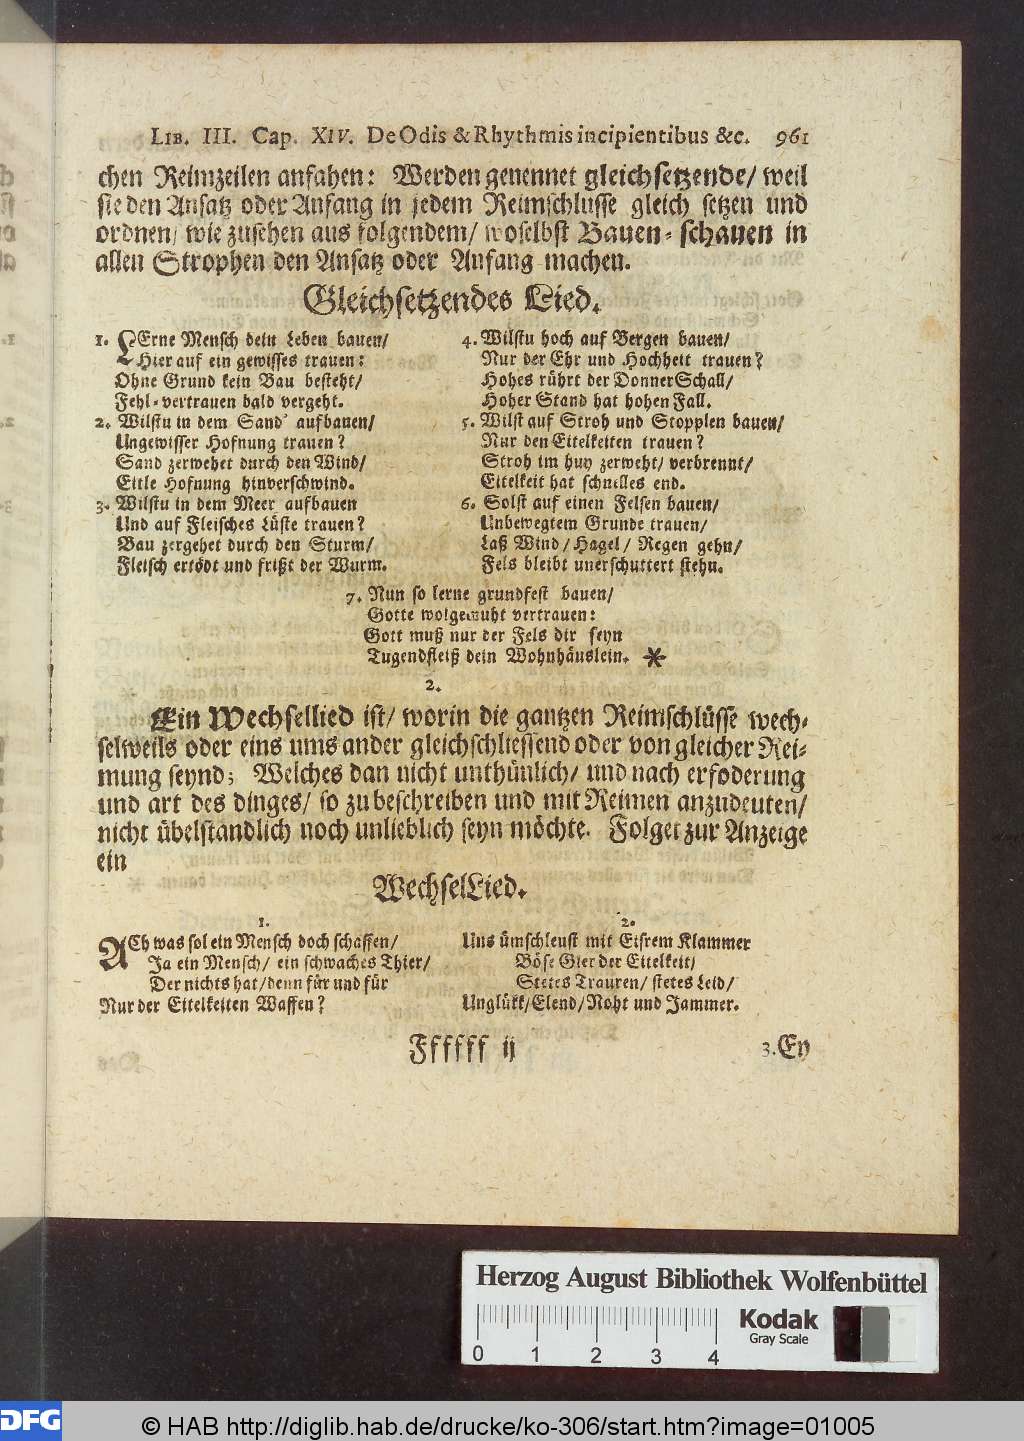 LIB. III. Cap. XIV. De Odis & Rhythmis incipientibus &c. 961
chen Reimzeilen anfahen: Werden genennet gleichsetzende/ weil
sie den Ansatz oder Anfang in jedem Reimschlusse gleich setzen und
ordnen/ wie zusehen aus folgendem/ woselbst Bauen-schauen in
allen Strophen den Ansatz oder Anfang machen.
Gleichsetzendes Lied.
1. LErne Mensch dein Leben bauen/
Hier auf ein gewisses trauen:
Ohne Grund kein Bau besteht/
Fehl-vertrauen bald vergeht.
2. Wilstu in dem Sand' aufbauen/
Ungewisser Hofnung trauen?
Sand zerwehet durch den Wind/
Eitle Hofnung hinverschwind.
3. Wilstu in dem Meer aufbauen
Und auf Fleisches Lüste trauen?
Bau zergehet durch den Sturm/
Fleisch ertödt und frißt der Wurm.
4. Wilstu hoch auf Bergen bauen/
Nur der Ehr und Hochheit trauen?
Hohes rührt der DonnerSchall/
Hoher Stand hat hohen Fall.
5. Wilst auf Stroh und Stopplen bauen/
Nur den Eitelkeiten trauen?
Stroh im huy zerweht/ verbrennt/
Eitelkeit hat schnelles end.
6. Solst auf einen Felsen bauen/
Unbewegtem Grunde trauen/
Laß Wind/ Hagel/ Regen gehn/
Fels bleibt unerschuttert stehn.
7. Nun so lerne grundfest bauen/
Gotte wolgemuht vertrauen:
Gott muß nur der Fels dir seyn
Tugendfleiß dein Wohnhäuslein. *
2.
Ein Wechsellied ist/ worin die gantzen Reimschlüsse wech-
selweils oder eins ums ander gleichschliessend oder von gleicher Rei-
mung seynd; Welches dan nicht unthünlich/ und nach erfoderung
und art des dinges/ so zu beschreiben und mit Reimen anzudeuten/
nicht übelstandlich noch unlieblich seyn möchte. Folget zur Anzeige
ein
WechselLied.
1.
ACh was sol ein Mensch doch schaffen/
Ja ein Mensch/ ein schwaches Thier/
Der nichts hat/ denn für und für
Nur der Eitelkeiten Waffen?
2.
Uns ümschleust mit Eisrem Klammer
Böse Gier der Eitelkeit/
Stetes Trauren/ stetes Leid/
Unglükk/ Elend/ Noht und Jammer.
Ffffff ij
3. Ey
Herzog August Bibliothek Wolfenbüttel
Kodak
Gray Scale
0 1 2 3 4
DFG
© HAB http://diglib.hab.de/drucke/ko-306/start.htm?image=01005